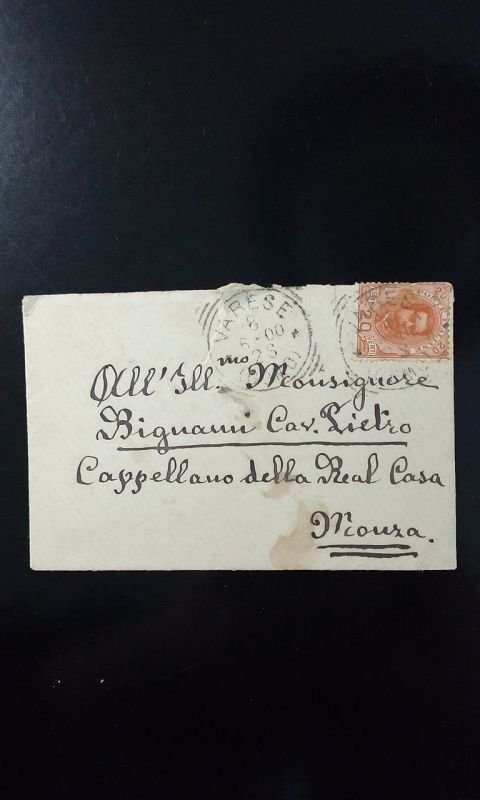 VARESE
All' Ill.mo Monsignore
Bignami Cav. Pietro
Cappellano della Real Casa
Monza.